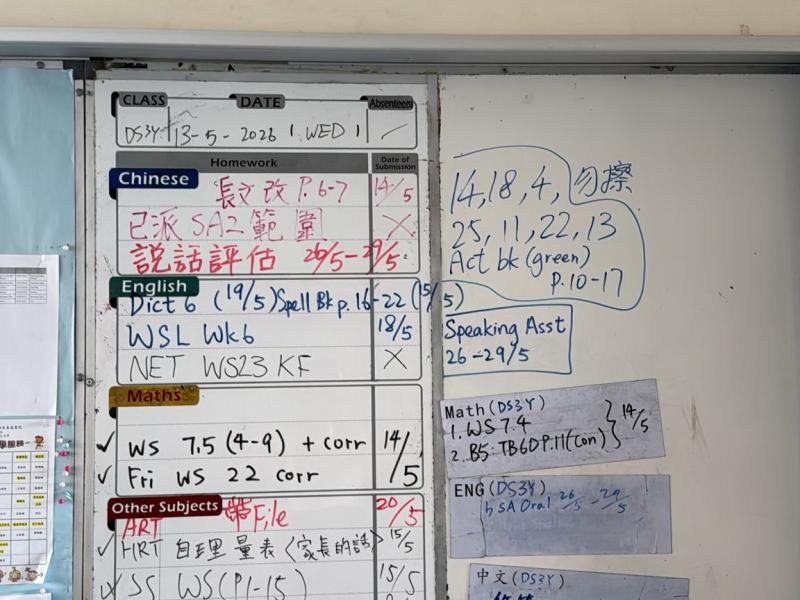 CLASS DATE Absentee(s)
DS3Y 13-5-2026 (WED)
Homework Date of Submission
Chinese
長文改 P.6-7 14/5
已派 SA2 範圍 X
說話評估 26/5-29/5
English
Dict 6 (19/5) Spell Bk p.16-22 (15/5)
WSL Wk6 18/5
NET WS23 KF X
Maths
✓ WS 7.5 (4-9) + corr 14/5
✓ Fri WS 22 corr
Other Subjects
ART 帶File 20/5
✓ 自理量表〈家長的話〉 15/5
SS WS(P1-15) 15/5
14, 18, 4, 勿擦
25, 11, 22, 13
Act bk (green)
P.10-17
Speaking Asst
26-29/5
Math (DS3Y)
1. WS 7.4 14/5
2. B5: TB6D P.11 (Con)
ENG (DS3Y)
SA Oral 26/5 - 29/5
中文 (DS3Y)